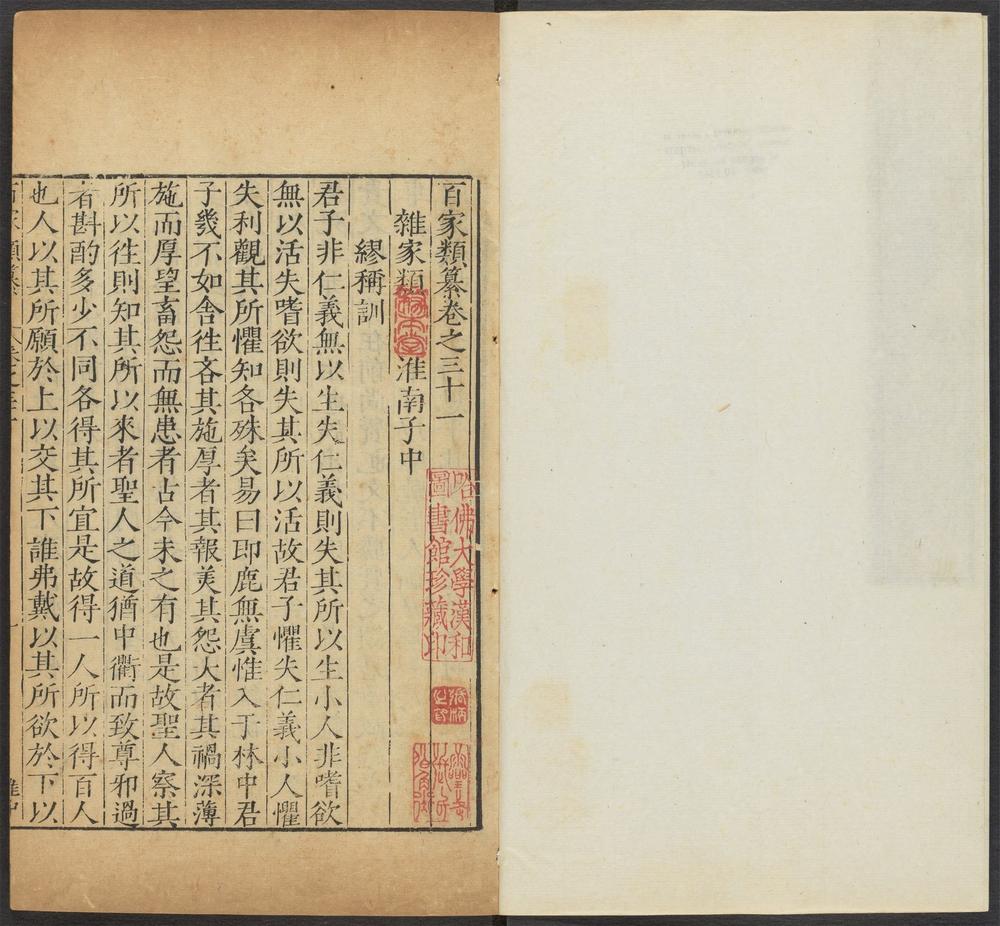 百家類纂卷之三十一
雜家類 淮南子中
繆稱訓
君子非仁義無以生失仁義則失其所以生小人非嗜欲
無以活失嗜欲則失其所以活故君子懼失仁義小人懼
失利觀其所懼知各殊矣易曰即鹿無虞惟入于林中君
子幾不如舍徃吝其施厚者其報美其怨大者其禍深薄
施而厚望畜怨而無患者古今未之有也是故聖人察其
所以徃則知其所以來者聖人之道猶中衢而致尊邪過
者斟酌多少不同各得其所宜是故得一人所以得百人
也人以其所願於上以交其下誰弗戴以其所欲於下以
哈佛大學漢和
圖書館珍藏印